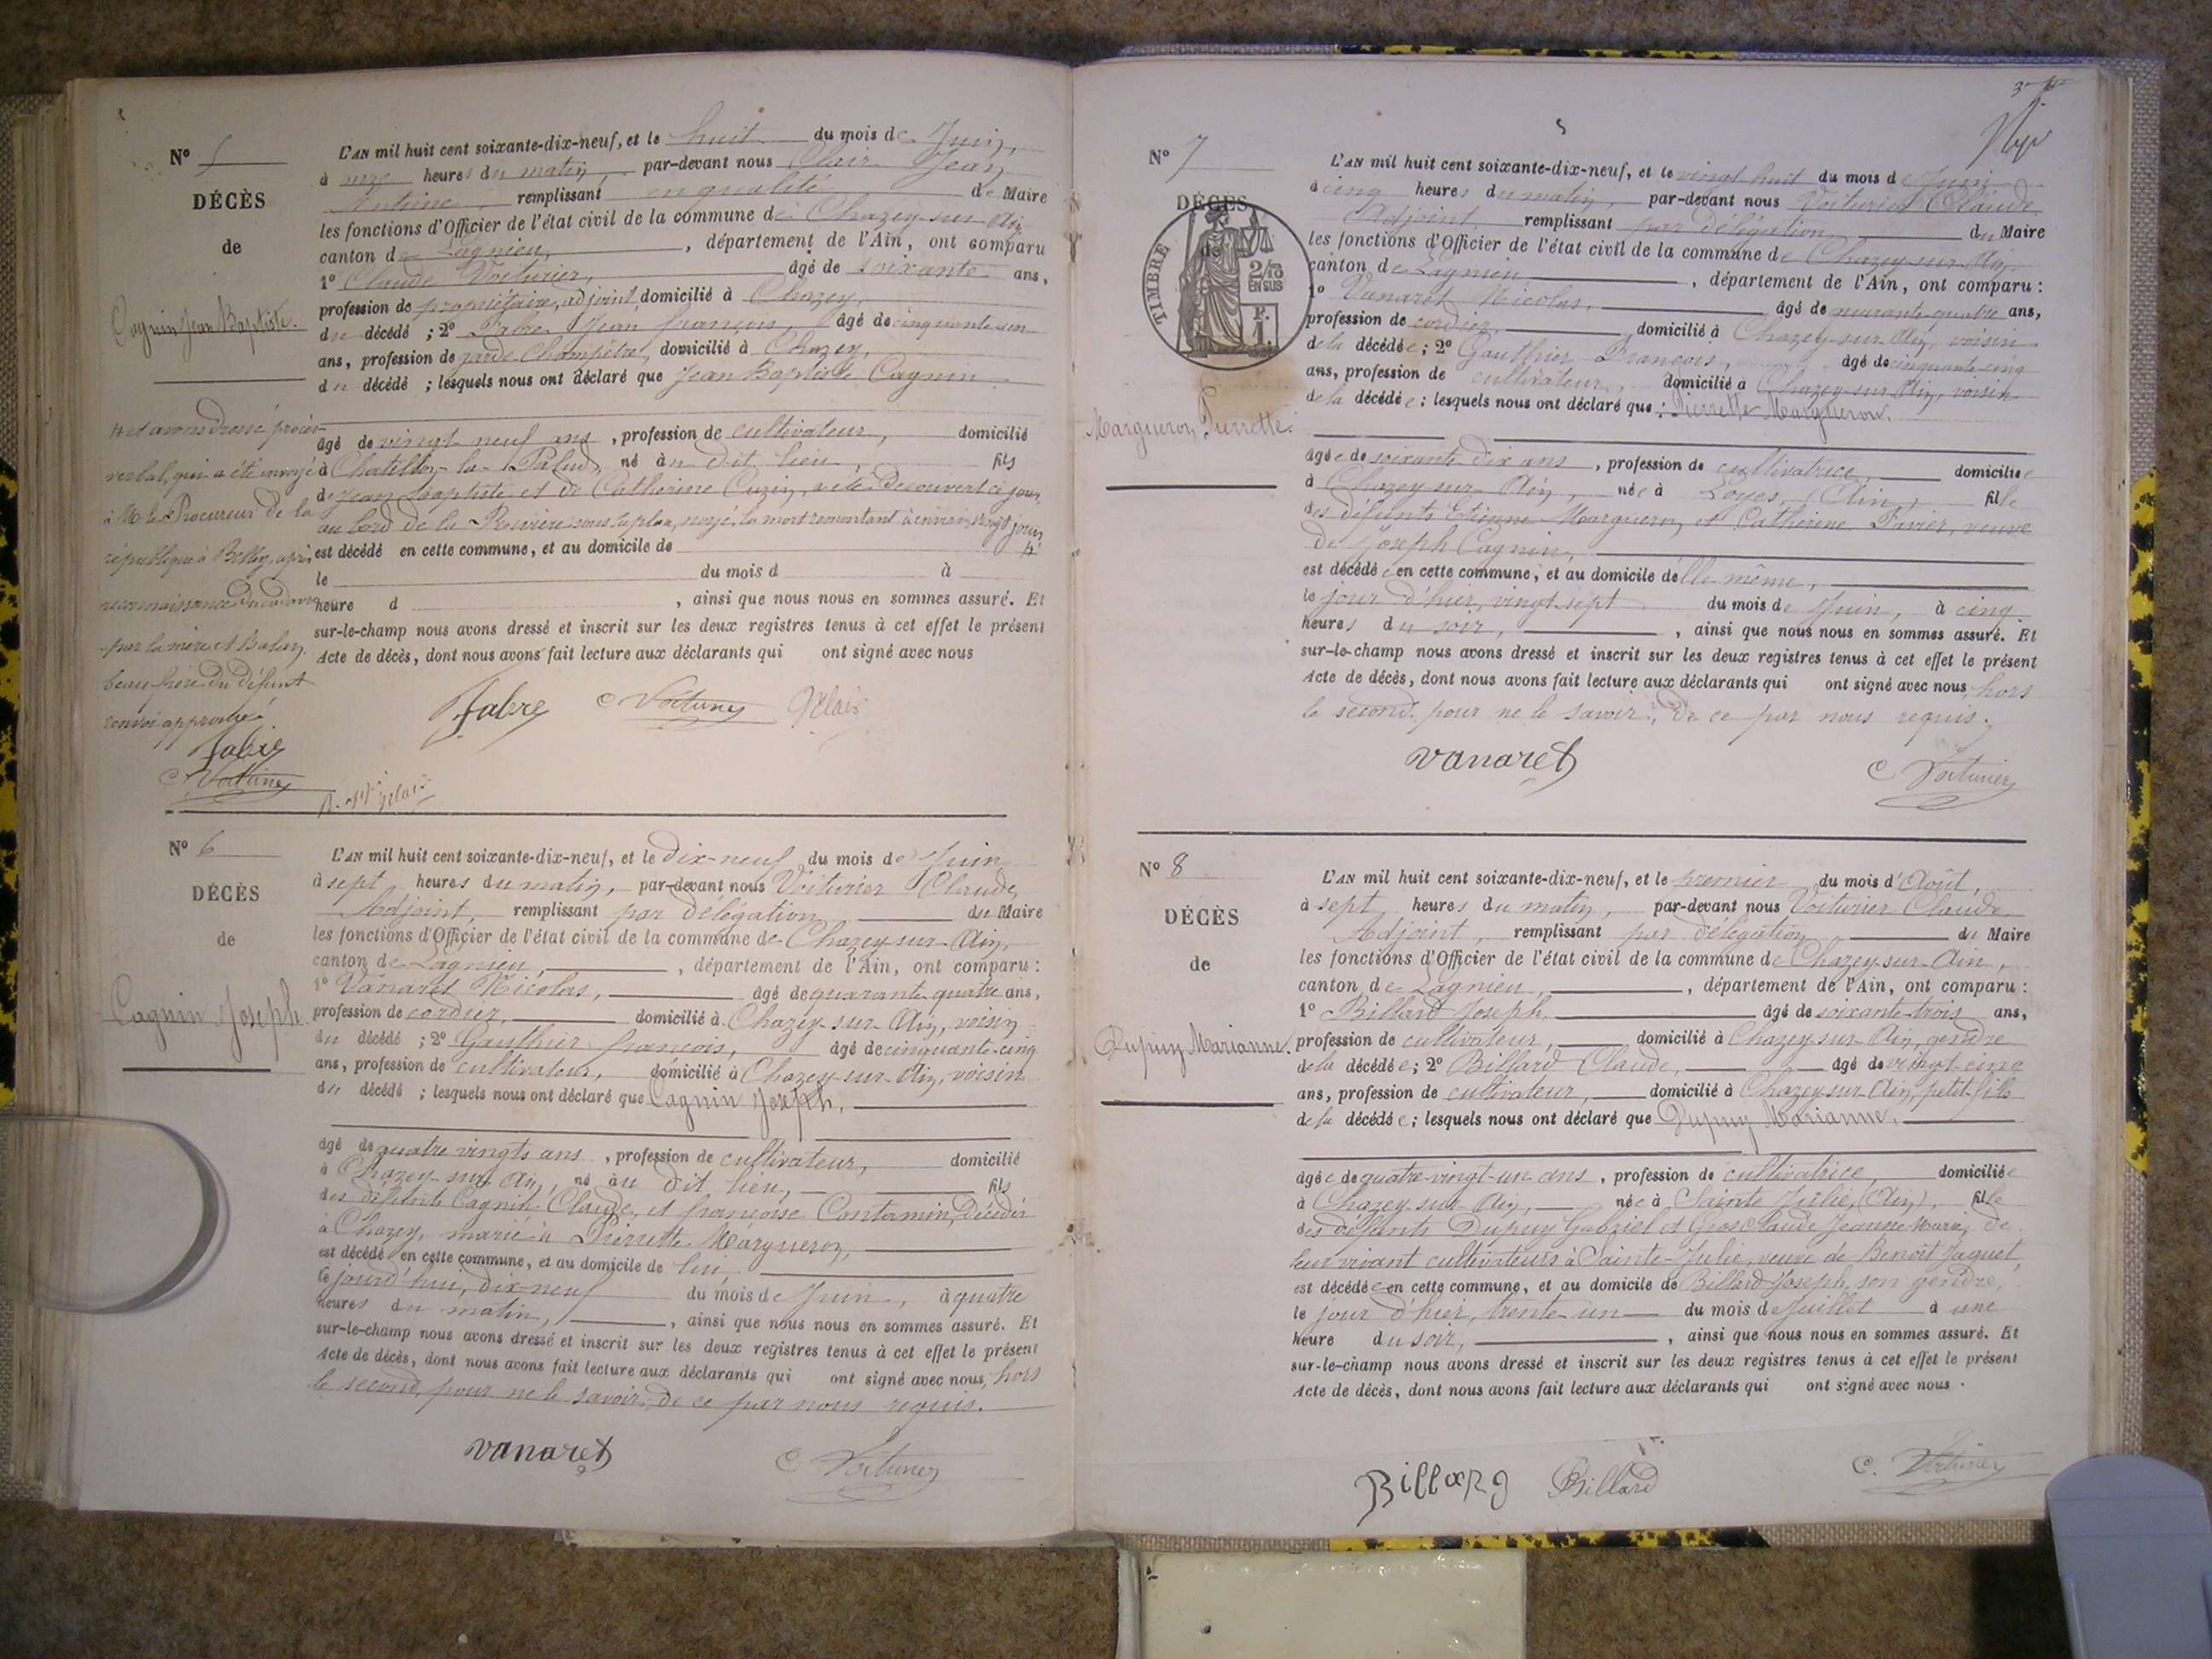 Nº 5
DÉCÈS
de
Cagnin Jean Baptiste.
L'AN mil huit cent soixante-dix-neuf, et le huit du mois de Juin,
à onze heures du matin, par-devant nous Clair Jean
Antoine, remplissant en qualité de Maire
les fonctions d'Officier de l'état civil de la commune de Chazey-sur-Ain
canton de Lagnieu, département de l'Ain, ont comparu
1º Claude Voiturier, âgé de soixante ans,
profession de propriétaire, adjoint, domicilié à Chazey,
du décédé ; 2º Fabre Jean françois, âgé de cinquante-un
ans, profession de garde Champêtre, domicilié à Chazey,
du décédé ; lesquels nous ont déclaré que Jean Baptiste Cagnin
âgé de vingt neuf ans, profession de cultivateur, domicilié
à Chatillon-la-Palud, né au dit lieu, fils
de Jean Baptiste et de Catherine Cuzin, a été découvert ce jour,
au bord de la Rivière sous la plaa, noyé, la mort remontant à environ vingt jours
est décédé en cette commune, et au domicile de
le du mois d à
heure d , ainsi que nous nous en sommes assuré. Et
sur-le-champ nous avons dressé et inscrit sur les deux registres tenus à cet effet le présent
Acte de décès, dont nous avons fait lecture aux déclarants qui ont signé avec nous
Fabre C Voiturier Jclair
et avons dressé procès
verbal, qui a été envoyé
à Mr le Procureur de la
république à Belley, après
reconnaissance du cadavre
par la mère et Balay
beau frère du défunt
renvoi approuvé.
Fabre
C Voiturier
Jclair
Nº 6
DÉCÈS
de
Cagnin Joseph.
L'AN mil huit cent soixante-dix-neuf, et le dix-neuf du mois de Juin
à sept heures du matin, par-devant nous Voiturier Claude,
Adjoint, remplissant par délégation du Maire
les fonctions d'Officier de l'état civil de la commune de Chazey-sur-Ain,
canton de Lagnieu, département de l'Ain, ont comparu :
1º Vanaret Nicolas, âgé de quarante quatre ans,
profession de cordier, domicilié à Chazey-sur-Ain, voisin
du décédé ; 2º Gauthier françois, âgé de cinquante-cinq
ans, profession de cultivateur, domicilié à Chazey-sur-Ain, voisin
du décédé ; lesquels nous ont déclaré que Cagnin Joseph,
âgé de quatre vingts ans, profession de cultivateur, domicilié
à Chazey-sur-Ain, né au dit lieu, fils
des défunts Cagnin Claude, et françoise Contamin, décédés
à Chazey, marié à Pierrette Margueron,
est décédé en cette commune, et au domicile de lui,
le jourd'hui, dix-neuf du mois de Juin, à quatre
heures du matin, ainsi que nous nous en sommes assuré. Et
sur-le-champ nous avons dressé et inscrit sur les deux registres tenus à cet effet le présent
Acte de décès, dont nous avons fait lecture aux déclarants qui ont signé avec nous, hors
le second, pour ne le savoir, de ce par nous requis.
vanaret C Voiturier
Nº 7
DÉCÈS
de
TIMBRE
2/10
EN SUS
F.
1.
Margueron Pierrette.
L'AN mil huit cent soixante-dix-neuf, et le vingt huit du mois de Juin
à cinq heures du matin, par-devant nous Voiturier Claude,
Adjoint, remplissant par délégation du Maire
les fonctions d'Officier de l'état civil de la commune de Chazey-sur-Ain,
canton de Lagnieu, département de l'Ain, ont comparu :
1º Vanaret Nicolas, âgé de quarante-quatre ans,
profession de cordier, domicilié à Chazey-sur-Ain, voisin
de la décédée ; 2º Gauthier François, âgé de cinquante-cinq
ans, profession de cultivateur, domicilié à Chazey-sur-Ain, voisin
de la décédée ; lesquels nous ont déclaré que : Pierrette Margueron.
âgée de soixante dix ans, profession de cultivatrice, domiciliée
à Chazey-sur-Ain, née à Loyes, (Ain) fille
des défunts Etienne Margueron, et Catherine Favier, veuve
de Joseph Cagnin,
est décédée en cette commune, et au domicile d'elle même,
le jour d'hier, vingt sept du mois de Juin, à cinq
heures du soir, ainsi que nous nous en sommes assuré. Et
sur-le-champ nous avons dressé et inscrit sur les deux registres tenus à cet effet le présent
Acte de décès, dont nous avons fait lecture aux déclarants qui ont signé avec nous, hors
le second, pour ne le savoir, de ce par nous requis.
vanaret C Voiturier
Nº 8
DÉCÈS
de
Dupuy Marianne.
L'AN mil huit cent soixante-dix-neuf, et le premier du mois d'Août,
à sept heures du matin, par-devant nous Voiturier Claude
Adjoint, remplissant par délégation du Maire
les fonctions d'Officier de l'état civil de la commune de Chazey-sur-Ain,
canton de Lagnieu, département de l'Ain, ont comparu :
1º Billard Joseph, âgé de soixante-trois ans,
profession de cultivateur, domicilié à Chazey-sur-Ain, gendre
de la décédée ; 2º Billard Claude, âgé de vingt-cinq
ans, profession de cultivateur, domicilié à Chazey-sur-Ain, petit-fils
de la décédée ; lesquels nous ont déclaré que Dupuy Marianne,
âgée de quatre-vingt-un ans, profession de cultivatrice, domiciliée
à Chazey-sur-Ain, née à Sainte Julie, (Ain), fille
des défunts Dupuy Gabriel et Gros Claude Jeanne Marie, de
leur vivant cultivateurs à Sainte-Julie, veuve de Benoit Jaquet,
est décédée en cette commune, et au domicile de Billard Joseph, son gendre,
le jour d'hier, trente-un du mois de Juillet à une
heure du soir, ainsi que nous nous en sommes assuré. Et
sur-le-champ nous avons dressé et inscrit sur les deux registres tenus à cet effet le présent
Acte de décès, dont nous avons fait lecture aux déclarants qui ont signé avec nous.
Billard Billard C. Voiturier